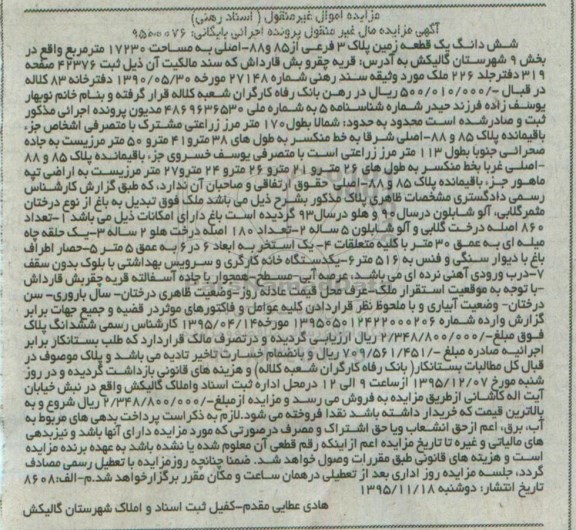 مزایده اموال غیرمنقول ( اسناد رهنی)
آگهی مزایده مال غیر منقول پرونده اجرائی بایگانی: ۹۵۰۰۰۷۶
شش دانگ یک قطعه زمین پلاک ۳ فرعی از۸۵ و۸۸-اصلی به مساحت ۱۷۲۳۰ مترمربع واقع در
بخش ۹ شهرستان گالیکش به آدرس: قریه چقرو بش قارداش که سند مالکیت آن ذیل ثبت ۴۲۳۷۶ صفحه
۳۱۹ دفترجلد ۲۲۶ ملک مورد وثیقه سند رهنی شماره ۲۷۱۴۸ مورخه ۱۳۹۰/۰۵/۳۰ دفترخانه ۸۳ کلاله
در قبال -/۵۰۰/۰۱۰/۰۰۰ ریال در رهن بانک رفاه کارگران شعبه کلاله قرار گرفته و بنام خانم نوبهار
یوسف زاده فرزند حیدر شماره شناسنامه ۵ به شماره ملی ۴۸۶۹۶۳۶۵۳۰ مدیون پرونده اجرائی مذکور
ثبت و صادرشده است محدود به حدود: شمالا بطول۱۷۰ متر مرز زراعتی مشترک با متصرفی اشخاص جزء
باقیمانده پلاک ۸۵ و ۸۸-اصلی شرقا به خط منکسر به طول های ۳۸ متر و۴۱ متر و ۵۰ متر مرزیست به جاده
صحرائی جنوبا بطول ۱۱۳ متر مرز زراعتی است با متصرفی یوسف خسروی جزء باقیمانده پلاک ۸۵ و ۸۸
-اصلی غربا بخط منکسر به طول های ۲۶ متر و ۲۱ متر و ۲۶ متر و ۲۴ متر و ۲۷ متر مرزیست به اراضی تپه
ماهور جزء باقیمانده پلاک ۸۵ و ۸۸-اصلی حقوق ارتفاقی و صاحبان آن ندارد، که طبق گزارش کارشناس
رسمی دادگستری مشخصات ظاهری پلاک مذکور بشرح ذیل می باشد ملک فوق تبدیل به باغ از نوع درختان
مثمرگلابی، آلو شابلون درسال۹۰ و هلو درسال۹۳ گردیده است باغ دارای امکانات ذیل می باشد ۱-تعداد
۸۶۰ اصله درخت گلابی و آلو شابلون ۵ ساله ۲-تعداد ۱۸۰ اصله درخت هلو ۲ ساله ۳-یک حلقه چاه
میله ای به عمق ۳۰ متر با کلیه متعلقات ۴- یک استخر به ابعاد ۶ در۶ به عمق ۵ متر ۵-حصار اطراف
باغ با دیوار سنگی و فنس به ۵۱۶ متر ۶-یکدستگاه خانه کارگری و سرویس بهداشتی با بلوک بدون سقف
۷-درب ورودی آهنی نرده ای می باشد، عرصه آبی-مسطح-همجوار با جاده آسفالته قریه چقربش قارداش
-با توجه به موقعیت استقرار ملک-عرف محل قیمت عادله روز-وضعیت ظاهری درختان- سال باروری- سن
درختان- وضعیت آبیاری و با ملحوظ نظر قراردادن کلیه عوامل و فاکتورهای موثردر قضیه و جمیع جهات برابر
گزارش وارده شماره ۱۳۹۵۰۵۰۱۲۴۲۲۰۰۰۲۰۶ مورخه۱۳۹۵/۰۴/۱۴ کارشناس رسمی ششدانگ پلاک
فوق مبلغ-/۲/۳۴۸/۸۰۰/۰۰۰ ریال ارزیابی گردیده و درتصرف مالک قراردارد که طلب بستانکار برابر
اجرائیه صادره مبلغ -/۷۰۹/۵۶۱/۴۵۱ ریال و بانضمام خسارت تاخیر تادیه می باشد و پلاک موصوف در
قبال کل مطالبات بستانکار( بانک رفاه کارگران شعبه کلاله) و هزینه های قانونی بازداشت گردیده و در روز
شنبه مورخ ۱۳۹۵/۱۲/۰۷ ازساعت ۹ الی ۱۲ درمحل اداره ثبت اسناد واملاک گالیکش واقع در نبش خیابان
آیت اله کاشانی ازطریق مزایده به فروش می رسد و مزایده ازمبلغ-/۲/۳۴۸/۸۰۰/۰۰۰ ریال شروع و به
بالاترین قیمت که خریدار داشته باشد نقدا فروخته می شود.لازم به ذکراست پرداخت بدهی های مربوط به
آب، برق، اعم ازحق انشعاب ویا حق اشتراک و مصرف درصورتی که مورد مزایده دارای آنها باشد و نیزبدهی
های مالیاتی و غیره تا تاریخ مزایده اعم ازاینکه رقم قطعی آن معلوم شده یا نشده باشد به عهده برنده مزایده
است و هزینه های قانونی طبق مقررات وصول خواهد شد. ضمنا چنانچه روزمزایده با تعطیل رسمی مصادف
گردد، جلسه مزایده روز اداری بعد از تعطیلی درهمان ساعت و مکان مقرر برگزارخواهد شد.م-الف:۸۶۰۸
تاریخ انتشار: دوشنبه ۱۳۹۵/۱۱/۱۸
هادی عطایی مقدم-کفیل ثبت اسناد و املاک شهرستان گالیکش